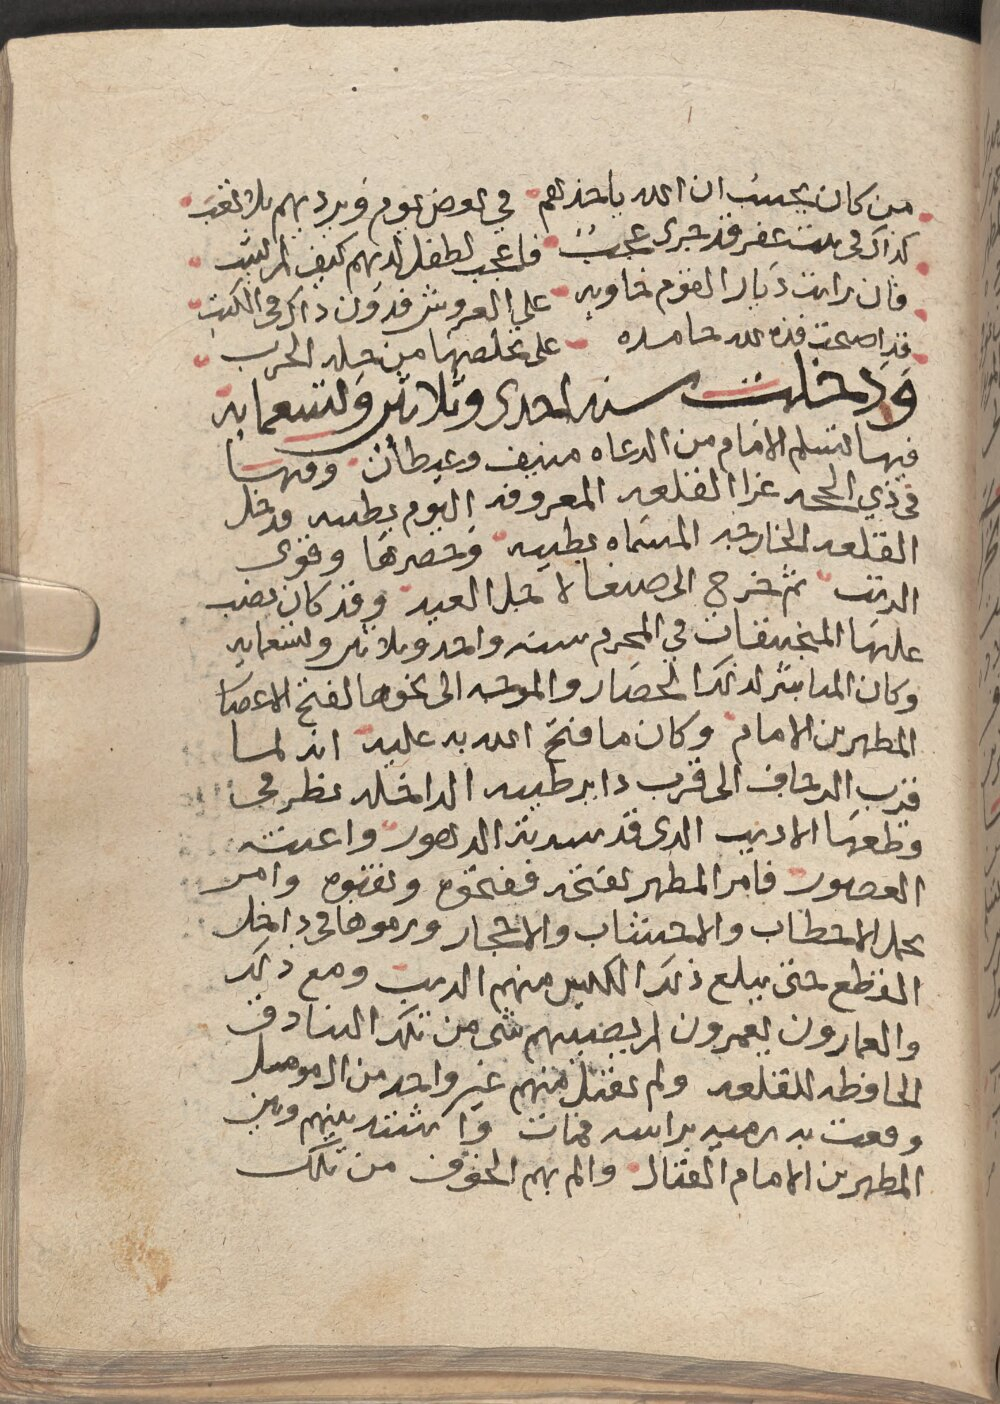 من كان يحسب ان الله ياخذهم في بعض يوم ويرديهم بلا تعب
كذاك في بنت عفر قد جرى عجب فاعجب لطفل لديهم كيف لم يشب
فان رايت ديار القوم خاويه على العروش فدون ذاك في الكتب
قد اصبحت فذه لله حامده على تخلصها من حمله الحرب
ودخلت سنه احدى وثلاثين وتسعمايه
فيها تسلم الامام من الدعاه منيف وغيطان وفيها
في ذي الحجه غزا القلعه المعروفه اليوم بطيبه فدخل
القلعه الخارجه المسماه بطيبه وحصرها وقوى
الرتب ثم خرج الى صنعا لاجل العيد وقد كان نصب
عليها المنجنيقات في المحرم سنه واحد وثلاثين وتسعمايه
وكان المباشر لذلك الحصار والموجه الى نحوها لفتح الاعصار
المطهر بن الامام وكان ما فتح الله به عليه انه لما
قرب الزحاف الى قرب داير طيبه الداخله نظر في
قطعها الاديب الذي قد سدته الدهور واعيته
العصور فامر المطهر بفتحه ففتحوه ونقبوه وامر
بحمل الاحطاب والاخشاب والاحجار ورموها في داخل
القطع حتى يبلع ذلك الكبس منهم الدرب ومع ذلك
والعمارون يعمرون لم يصبهم شي من تلك البنادق
الحافظه للقلعه ولم يقتل منهم غير واحد من الموصل
وقعت به رميه براسه فمات واشتد بينهم وبين
المطهر بن الامام القتال والم بهم الخوف من تلك